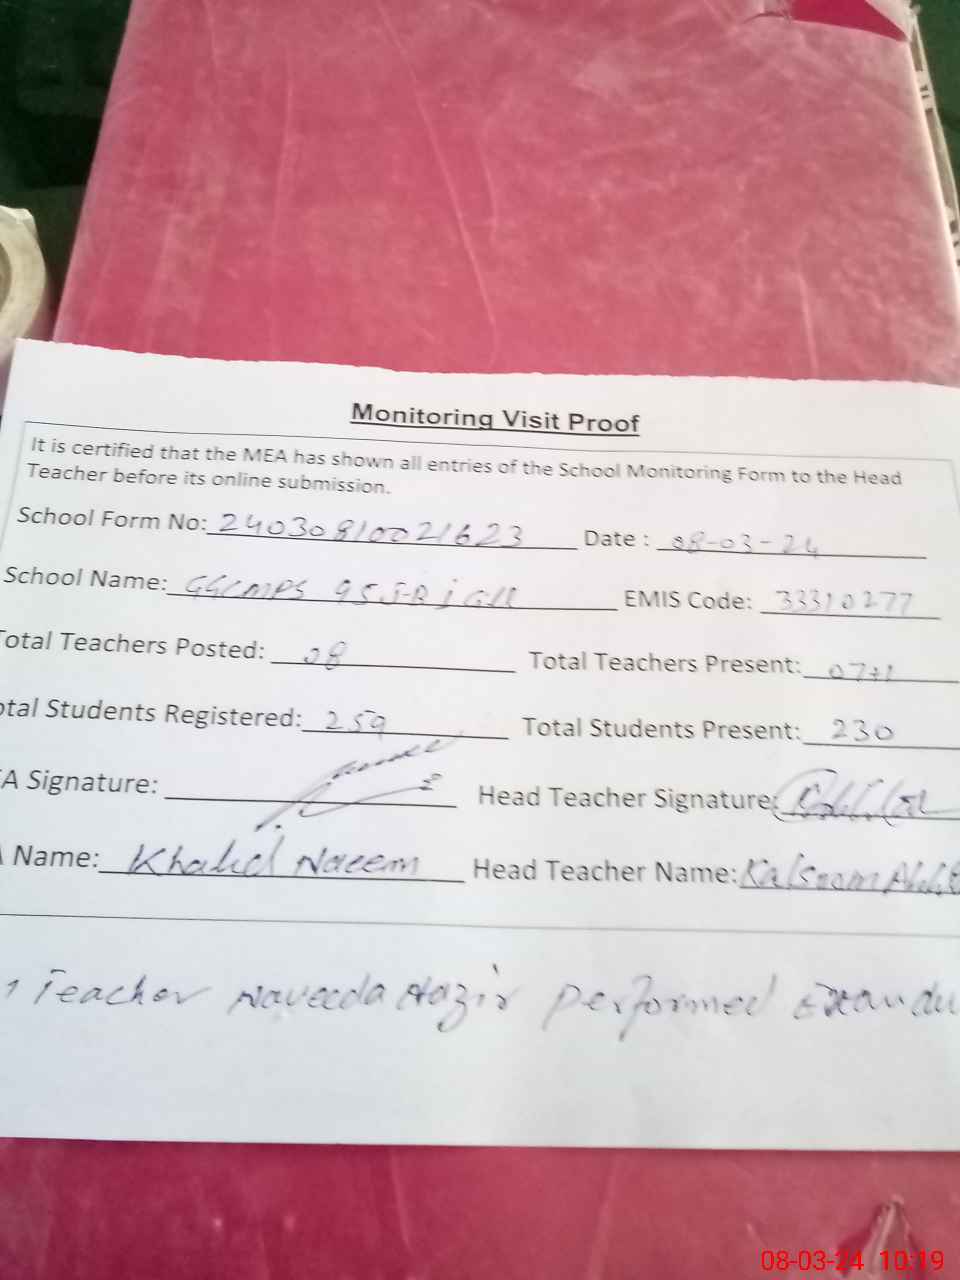 Monitoring Visit Proof
It is certified that the MEA has shown all entries of the School Monitoring Form to the Head
Teacher before its online submission.
School Form No: 24030810021623 Date : 08-03-24
School Name: GGCMPS 95 EMIS Code: 33310277
Total Teachers Posted: 08 Total Teachers Present: 07+1
otal Students Registered: 259 Total Students Present: 230
A Signature: Head Teacher Signature:
Name: Khalid Naeem Head Teacher Name: Kalsoom
1 Teacher Naveeda Nazir performed
08-03-24 10:19